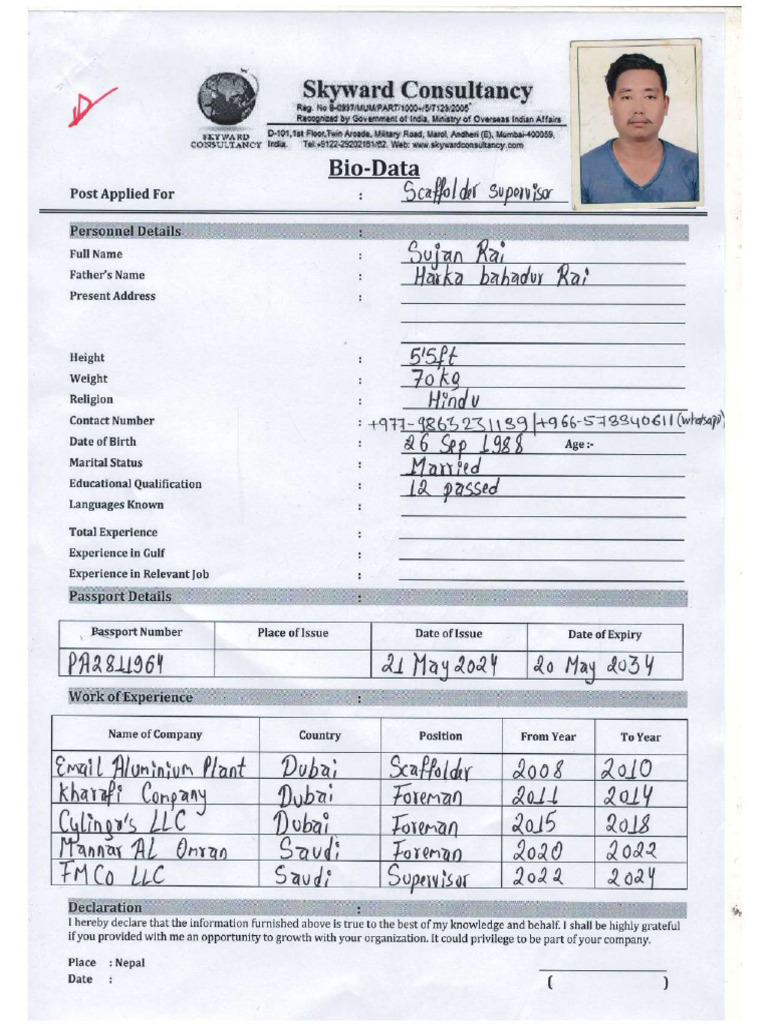 Skyward Consultancy
Reg. No B-0937/MUM/PART/1000+/5/7129/2005
Recognized by Government of India, Ministry of Overseas Indian Affairs
SKYWARD CONSULTANCY
D-101,1st Floor,Twin Arcade, Military Road, Marol, Andheri (E), Mumbai-400059,
India. Tel:+9122-29202151/52. Web: www.skywardconsultancy.com
Bio-Data
Post Applied For : Scaffolder Supervisor
Personnel Details :
Full Name : Sujan Rai
Father's Name : Harka bahadur Rai
Present Address :
Height : 5'5ft
Weight : 70 kg
Religion : Hindu
Contact Number : +977-9863231139/+966-578340611 (whatsapp)
Date of Birth : 26 Sep 1988 Age :-
Marital Status : Married
Educational Qualification : 12 passed
Languages Known :
Total Experience :
Experience in Gulf :
Experience in Relevant Job :
Passport Details :
Passport Number Place of Issue Date of Issue Date of Expiry
PA2811964 21 May 2024 20 May 2034
Work of Experience :
Name of Company Country Position From Year To Year
Email Aluminium Plant Dubai Scaffolder 2008 2010
Kharafi Company Dubai Foreman 2011 2014
Cylingr's LLC Dubai Foreman 2015 2018
Mannar AL Omran Saudi Foreman 2020 2022
FMCo LLC Saudi Supervisor 2022 2024
Declaration :
I hereby declare that the information furnished above is true to the best of my knowledge and behalf. I shall be highly grateful
if you provided with me an opportunity to growth with your organization. It could privilege to be part of your company.
Place : Nepal
Date :
( )